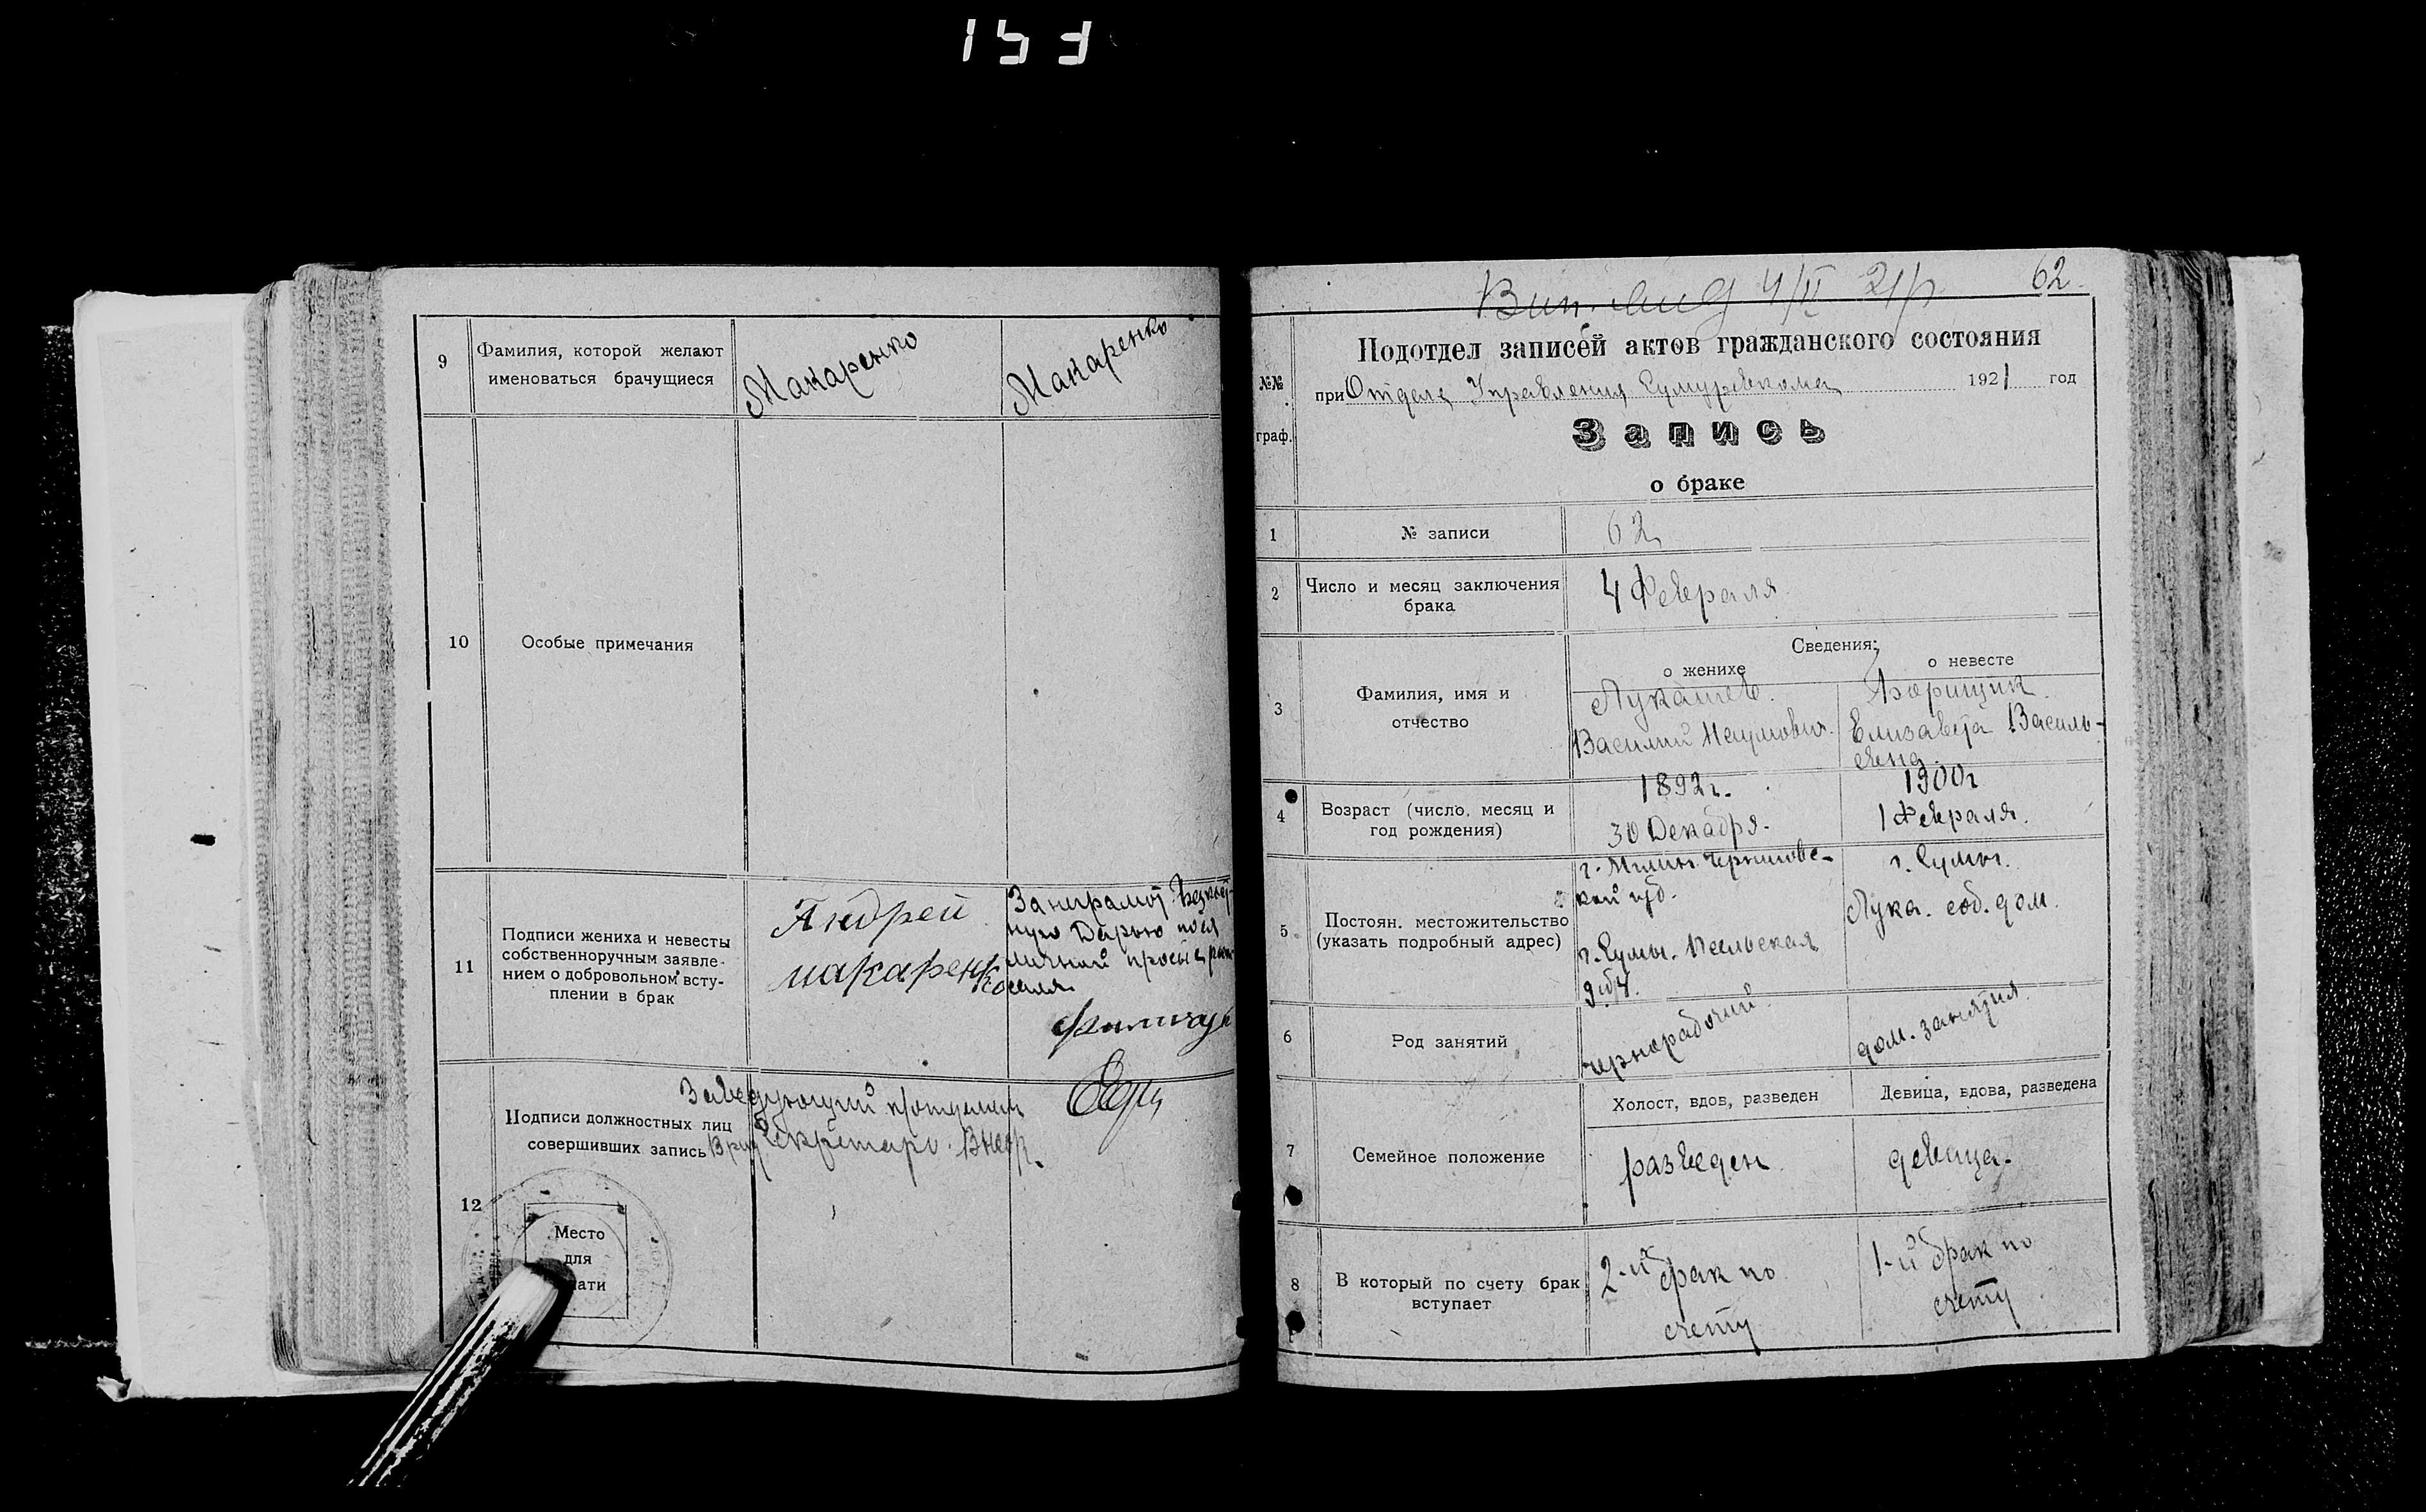 153
9
Фамилия, которой желают
именоваться брачущиеся
Макаренко
Макаренко
10
Особые примечания
11
Подписи жениха и невесты
собственноручным заявле-
нием о добровольном всту-
плении в брак
Андрей
макаренко
Дарью
личной
12
Подписи должностных лиц
совершивших запись
Заведующий
Секретарь
Место
для
62
Подотдел записей актов гражданского состояния
при Отделе Управления Сумуревкома 1921 год
№№
граф.
Запись
о браке
1
№ записи
62
2
Число и месяц заключения
брака
4 Февраля
3
Фамилия, имя и
отчество
Сведения:
о женихе
о невесте
Лукашев.
Василий Наумович.
Борищик.
Елизавета Василь-
евна.
4
Возраст (число, месяц и
год рождения)
1892г.
30 Декабря.
1900г
1 Февраля.
5
Постоян. местожительство
(указать подробный адрес)
г. Мглин. Черниговс-
кой губ.
г. Сумы. Псельская
г. Сумы.
Лука. соб. дом.
6
Род занятий
чернорабочий
дом. занятия
7
Семейное положение
Холост, вдов, разведен
Девица, вдова, разведена
разведен
девица.
8
В который по счету брак
вступает
2-й брак по
счету
1-й брак по
счету